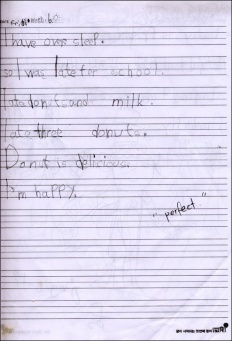 I have over sleep.
so I was late for school.
I ate donuts and milk.
I ate three donuts.
Donut is delicious
I'm happy.
"perfect"